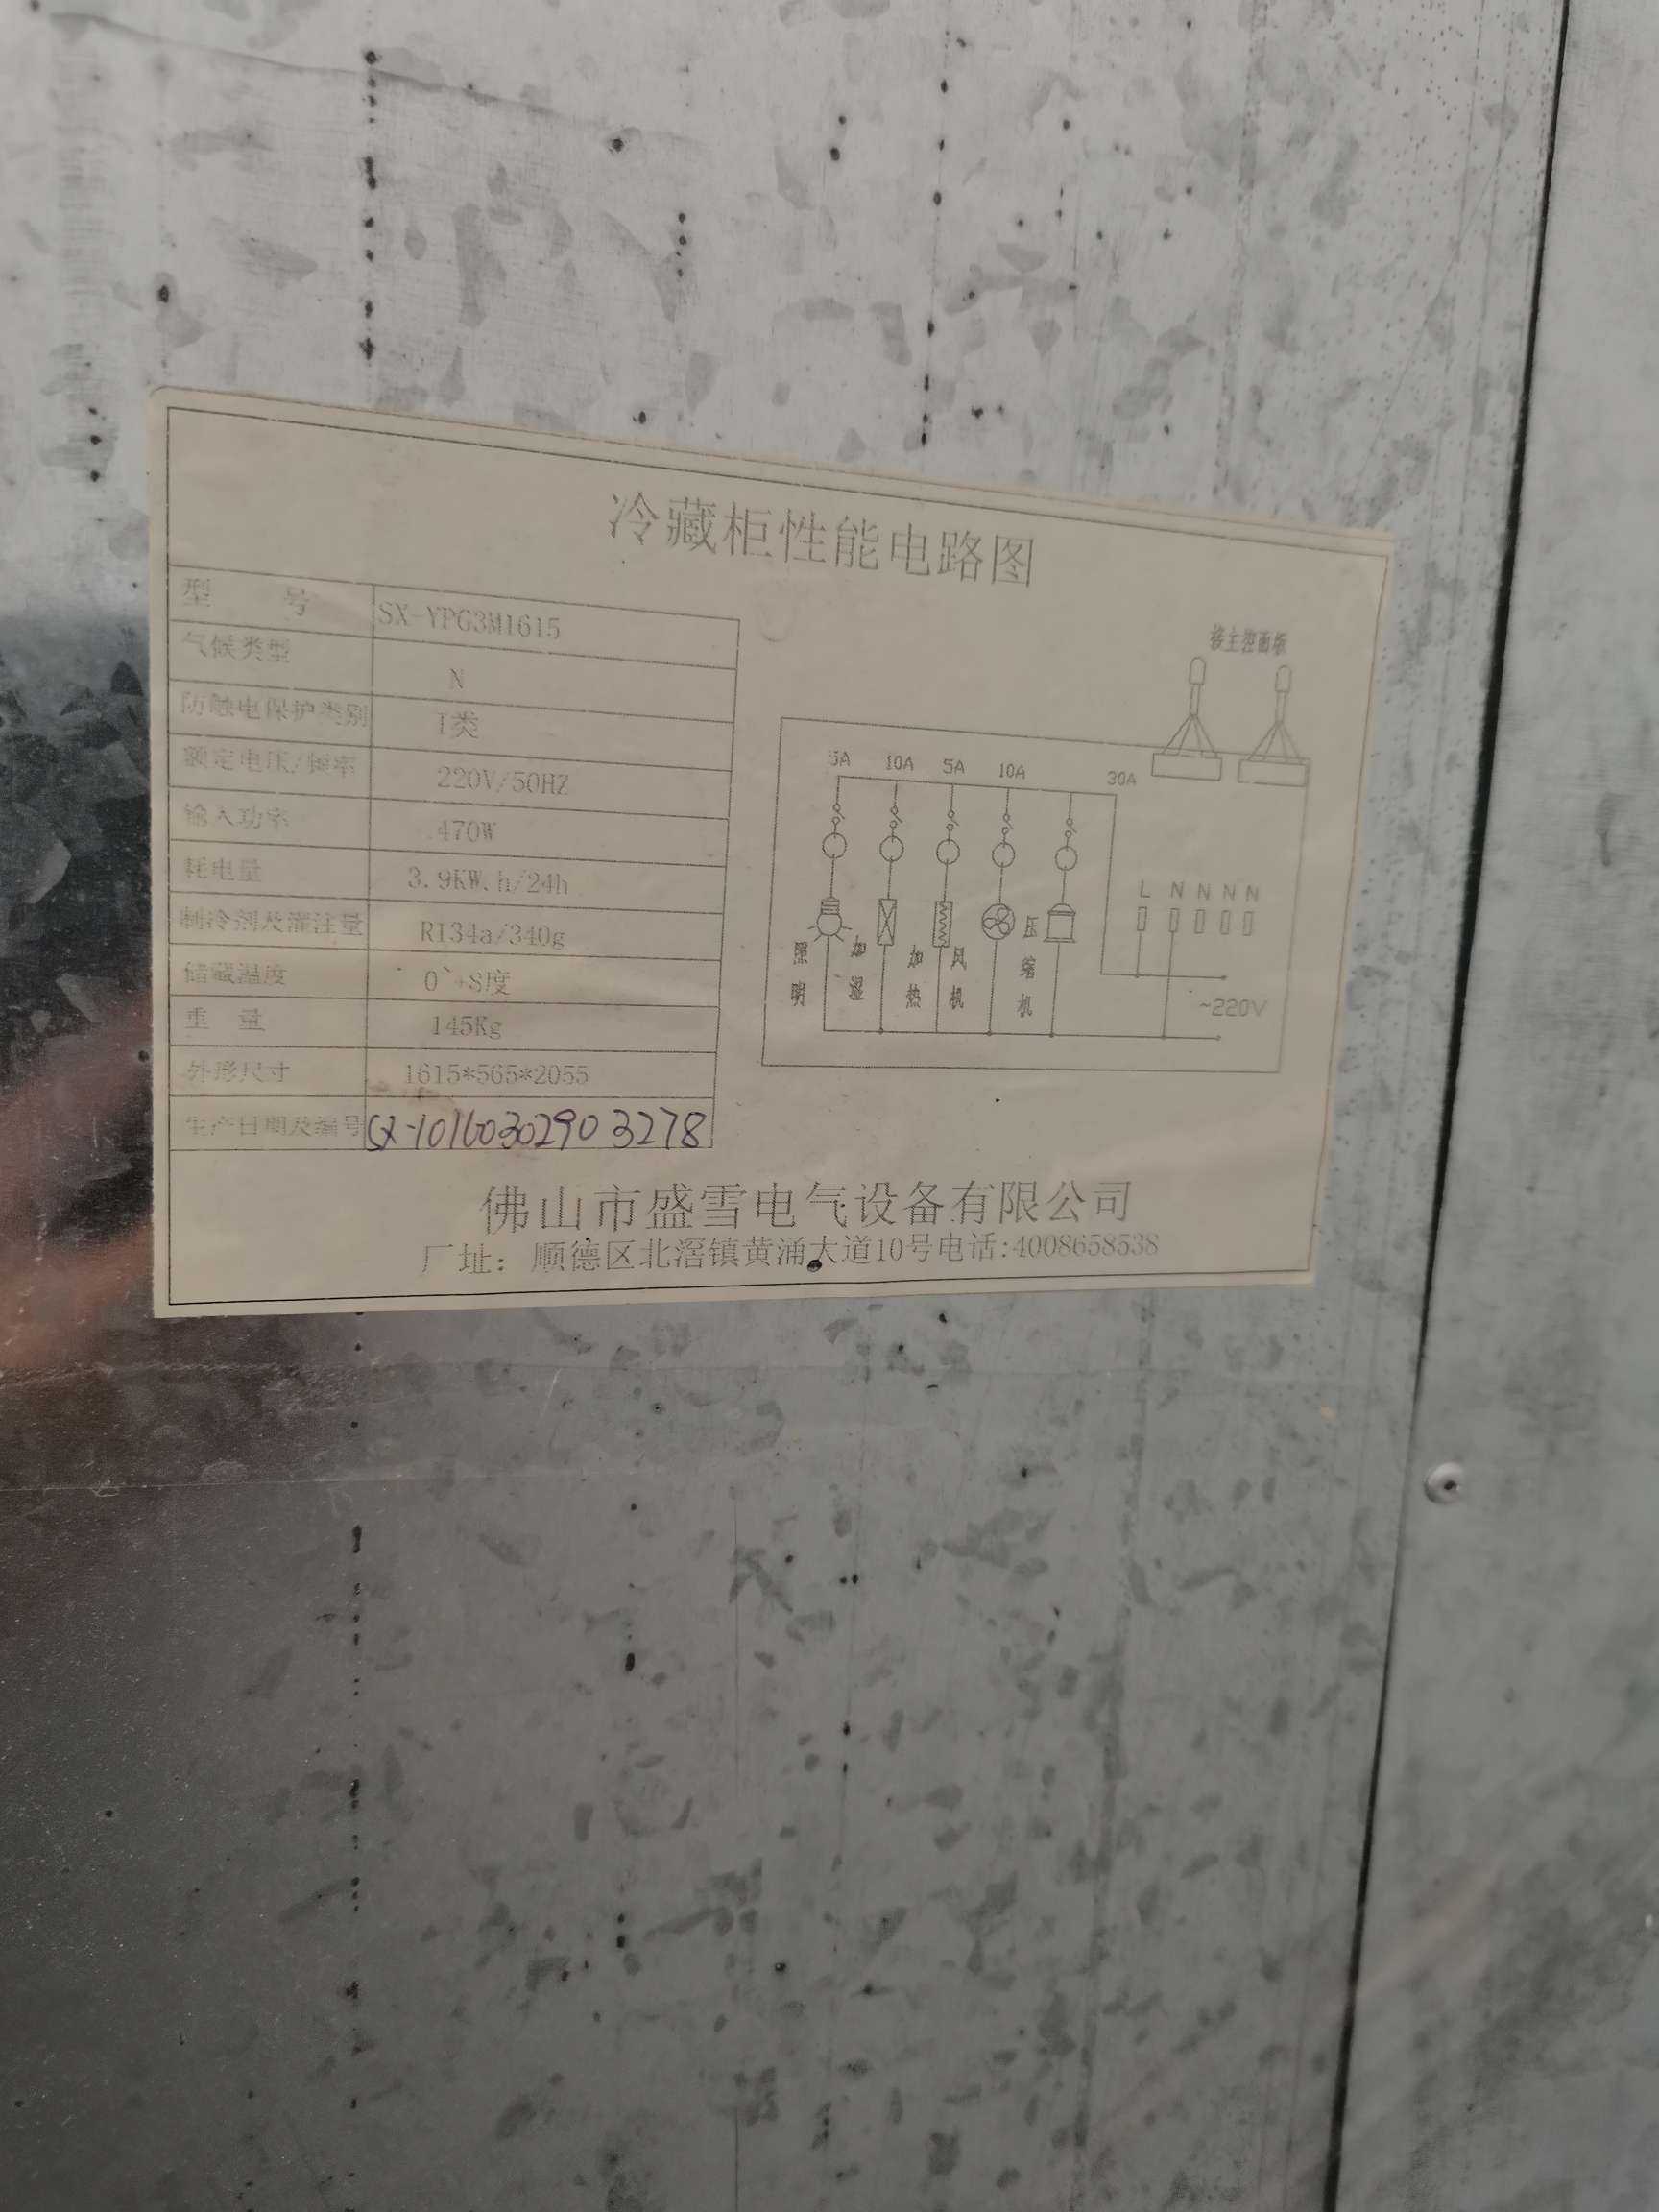 冷藏柜性能电路图
型 号 SX-YPG3M1615
气候类型 N
防触电保护类别 I类
额定电压/频率 220V/50HZ
输入功率 470W
耗电量 3.9KW.h/24h
制冷剂及灌注量 R134a/340g
储藏温度 0`+S度
重 量 145Kg
外形尺寸 1615*565*2055
生产日期及编号 SX-1016030290 3278
接主控面板
5A 10A 5A 10A 30A
L N N N N
照明 加湿 加热 风机 压缩机
~220V
佛山市盛雪电气设备有限公司
厂址：顺德区北滘镇黄涌大道10号电话:4008658538